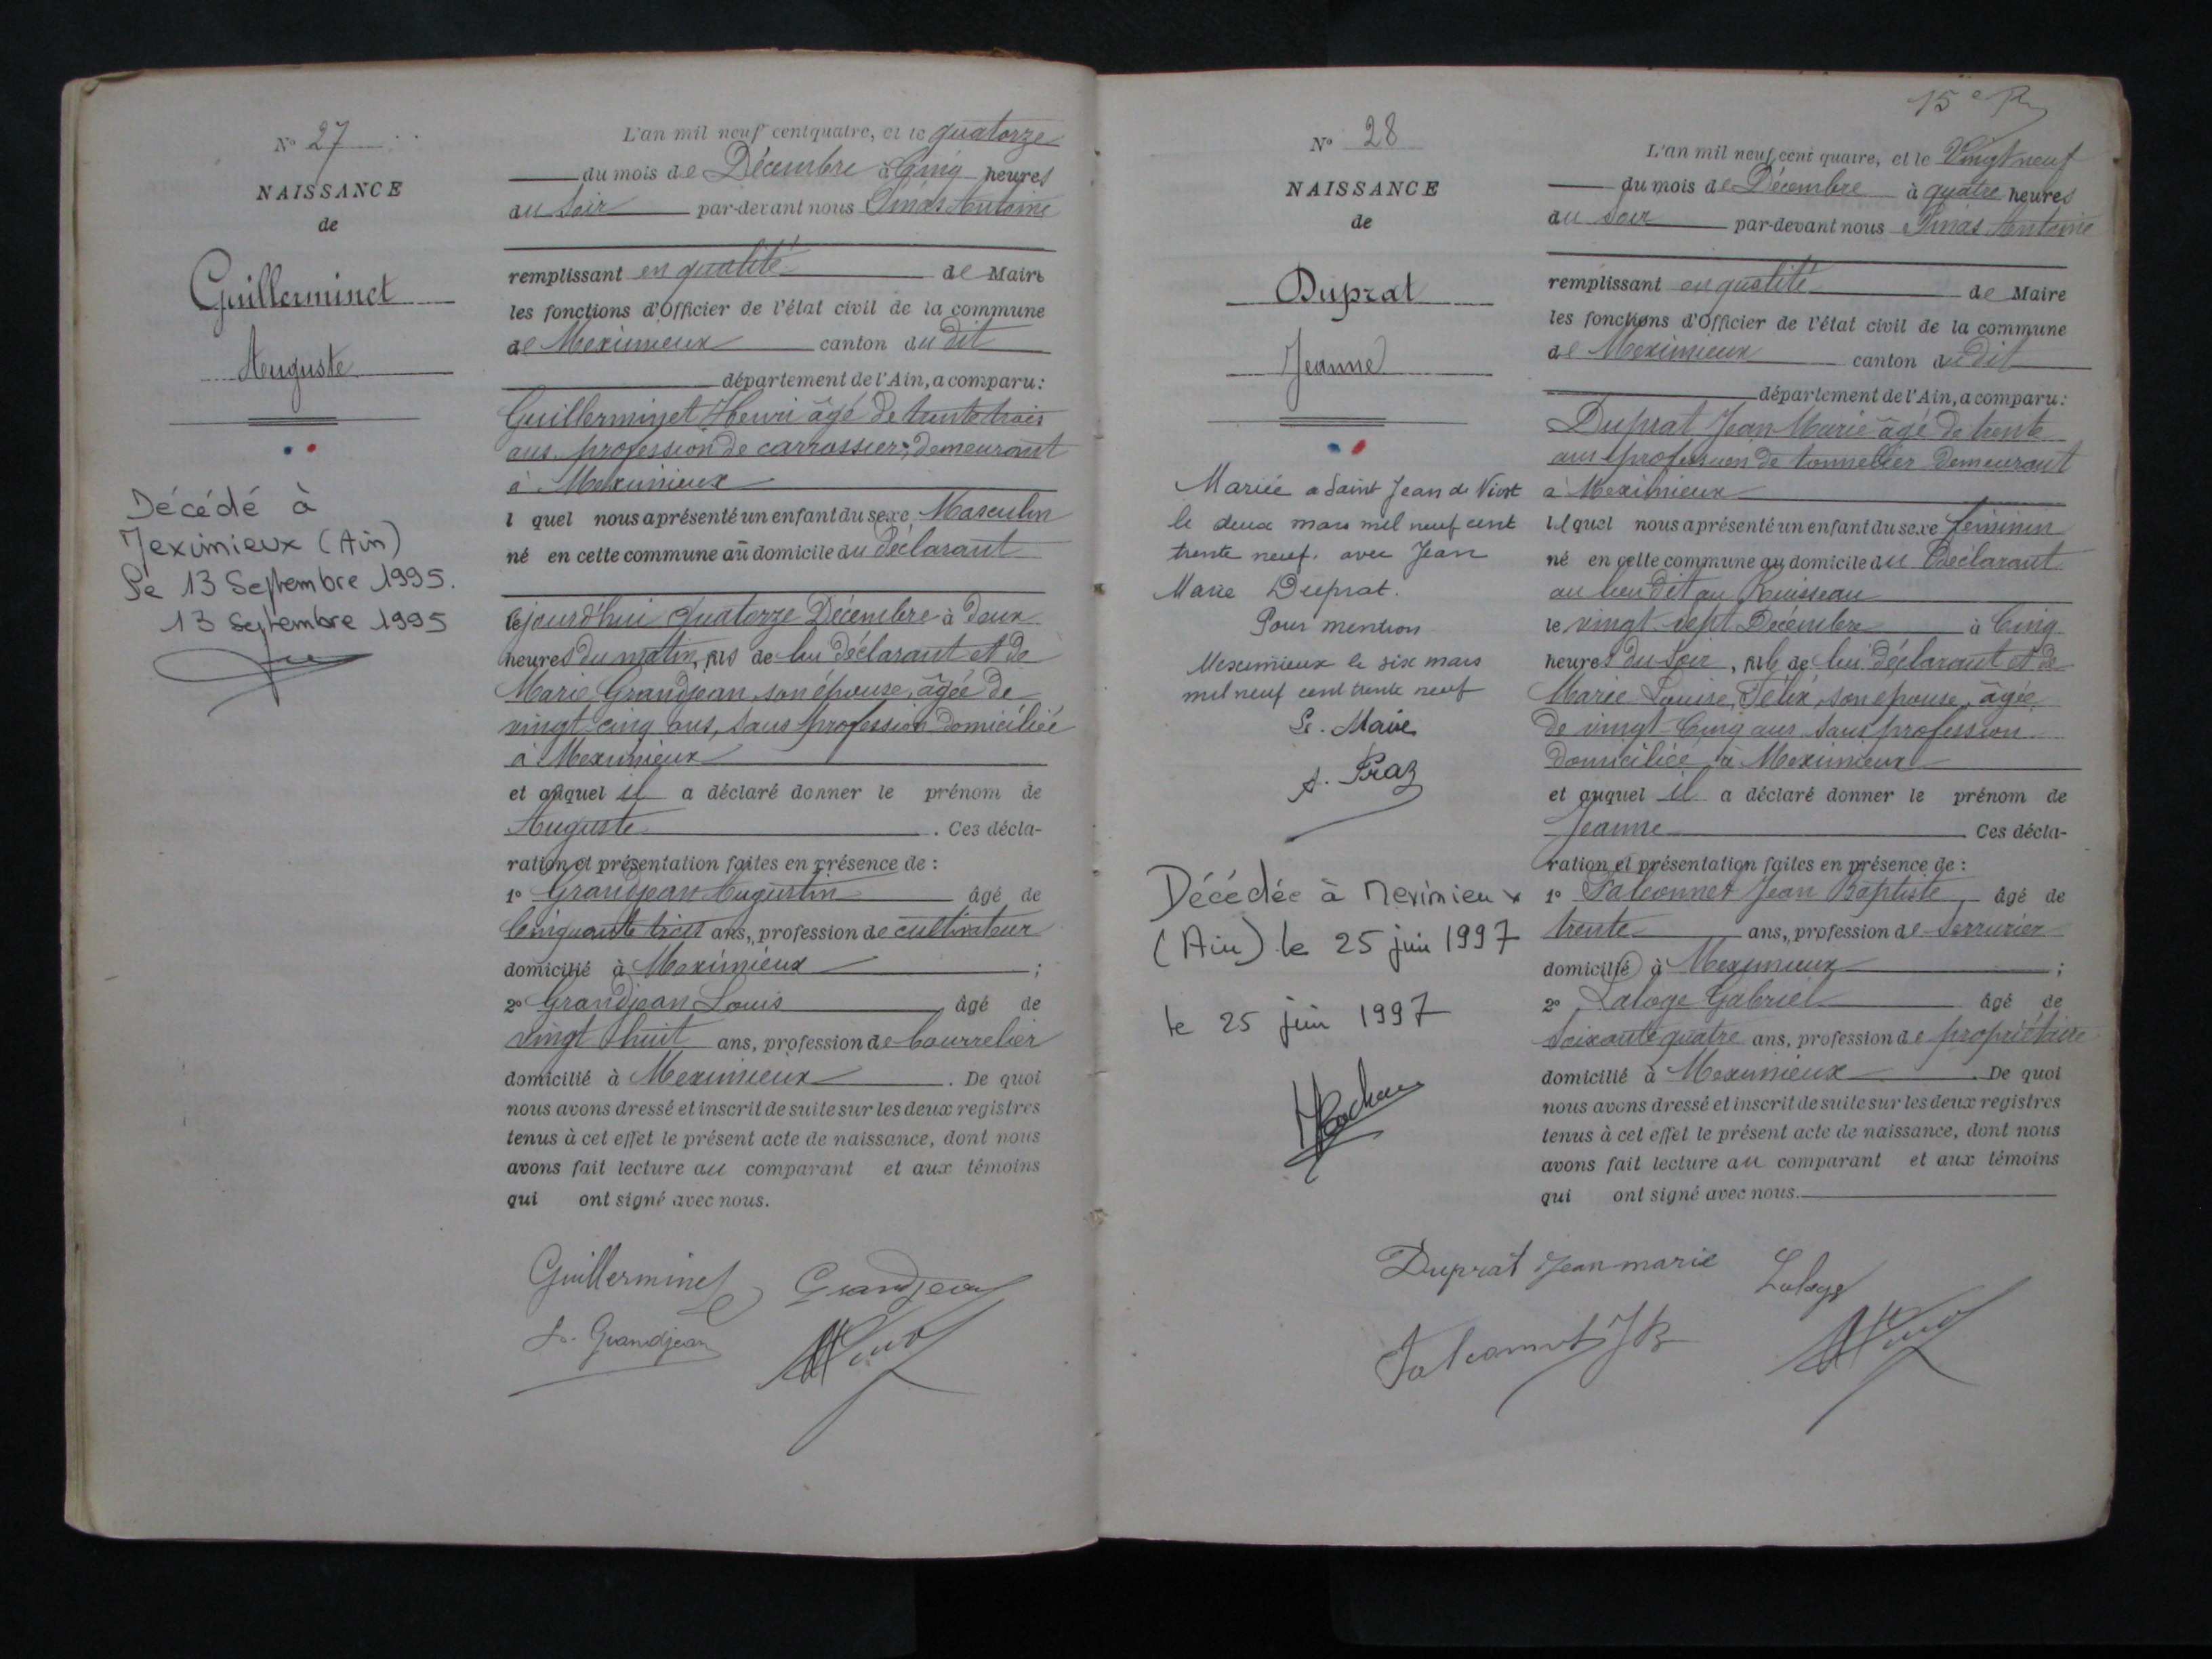 N° 27
NAISSANCE
de
Guillerminet
Auguste
Décédé à
Meximieux (Ain)
Le 13 Septembre 1995.
13 Septembre 1995
L'an mil neuf cent quatre, et le quatorze
du mois de Décembre à Cinq heures
du Soir par-devant nous Antoine
remplissant en qualité de Maire
les fonctions d'Officier de l'état civil de la commune
de Meximieux canton du dit
département de l'Ain, a comparu :
Guillerminet Henri âgé de trente trois
ans profession de carrossier, demeurant
à Meximieux
l quel nous a présenté un enfant du sexe Masculin
né en cette commune au domicile du Déclarant
cejourd'hui Quatorze Décembre à Deux
heures du matin, fils de lui déclarant et de
Marie Grandjean son épouse, âgée de
vingt-cinq ans, sans profession domiciliée
à Meximieux
et auquel il a déclaré donner le prénom de
Auguste. Ces décla-
ration et présentation faites en présence de :
1° Grandjean Augustin âgé de
Cinquante trois ans, profession de cultivateur
domicilié à Meximieux ;
2° Grandjean Louis âgé de
vingt huit ans, profession de bourrelier
domicilié à Meximieux. De quoi
nous avons dressé et inscrit de suite sur les deux registres
tenus à cet effet le présent acte de naissance, dont nous
avons fait lecture au comparant et aux témoins
qui ont signé avec nous.
Guillerminet Grandjean
L. Grandjean
15e
N° 28
NAISSANCE
de
Duprat
Jeanne
Mariée a Saint Jean de Niost
le deux mars mil neuf cent
trente neuf. avec Jean
Marie Duprat.
Pour mention
Meximieux le six mars
mil neuf cent trente neuf
Le Maire
Décédée à Meximieux
(Ain) le 25 juin 1997
le 25 juin 1997
L'an mil neuf cent quatre, et le Vingt neuf
du mois de Décembre à quatre heures
du Soir par-devant nous Antoine
remplissant en qualité de Maire
les fonctions d'Officier de l'état civil de la commune
de Meximieux canton du dit
département de l'Ain, a comparu :
Duprat Jean Marie âgé de trente
ans profession de tonnelier Demeurant
à Meximieux
lequel nous a présenté un enfant du sexe féminin
né en cette commune au domicile du Déclarant
au lieu dit au Ruisseau
le vingt-sept Décembre à Cinq
heures du Soir, fille de lui déclarant et de
Marie Louise Félix, son épouse, âgée
de vingt-Cinq ans sans profession
Domiciliée à Meximieux
et auquel il a déclaré donner le prénom de
Jeanne Ces décla-
ration et présentation faites en présence de :
1° Falconnet Jean Baptiste âgé de
trente ans, profession de Serrurier
domicilié à Meximieux ;
2° Laloge Gabriel âgé de
Soixante quatre ans, profession de propriétaire
domicilié à Meximieux. De quoi
nous avons dressé et inscrit de suite sur les deux registres
tenus à cet effet le présent acte de naissance, dont nous
avons fait lecture au comparant et aux témoins
qui ont signé avec nous.
Duprat Jean marie Laloge
Falconnet JB